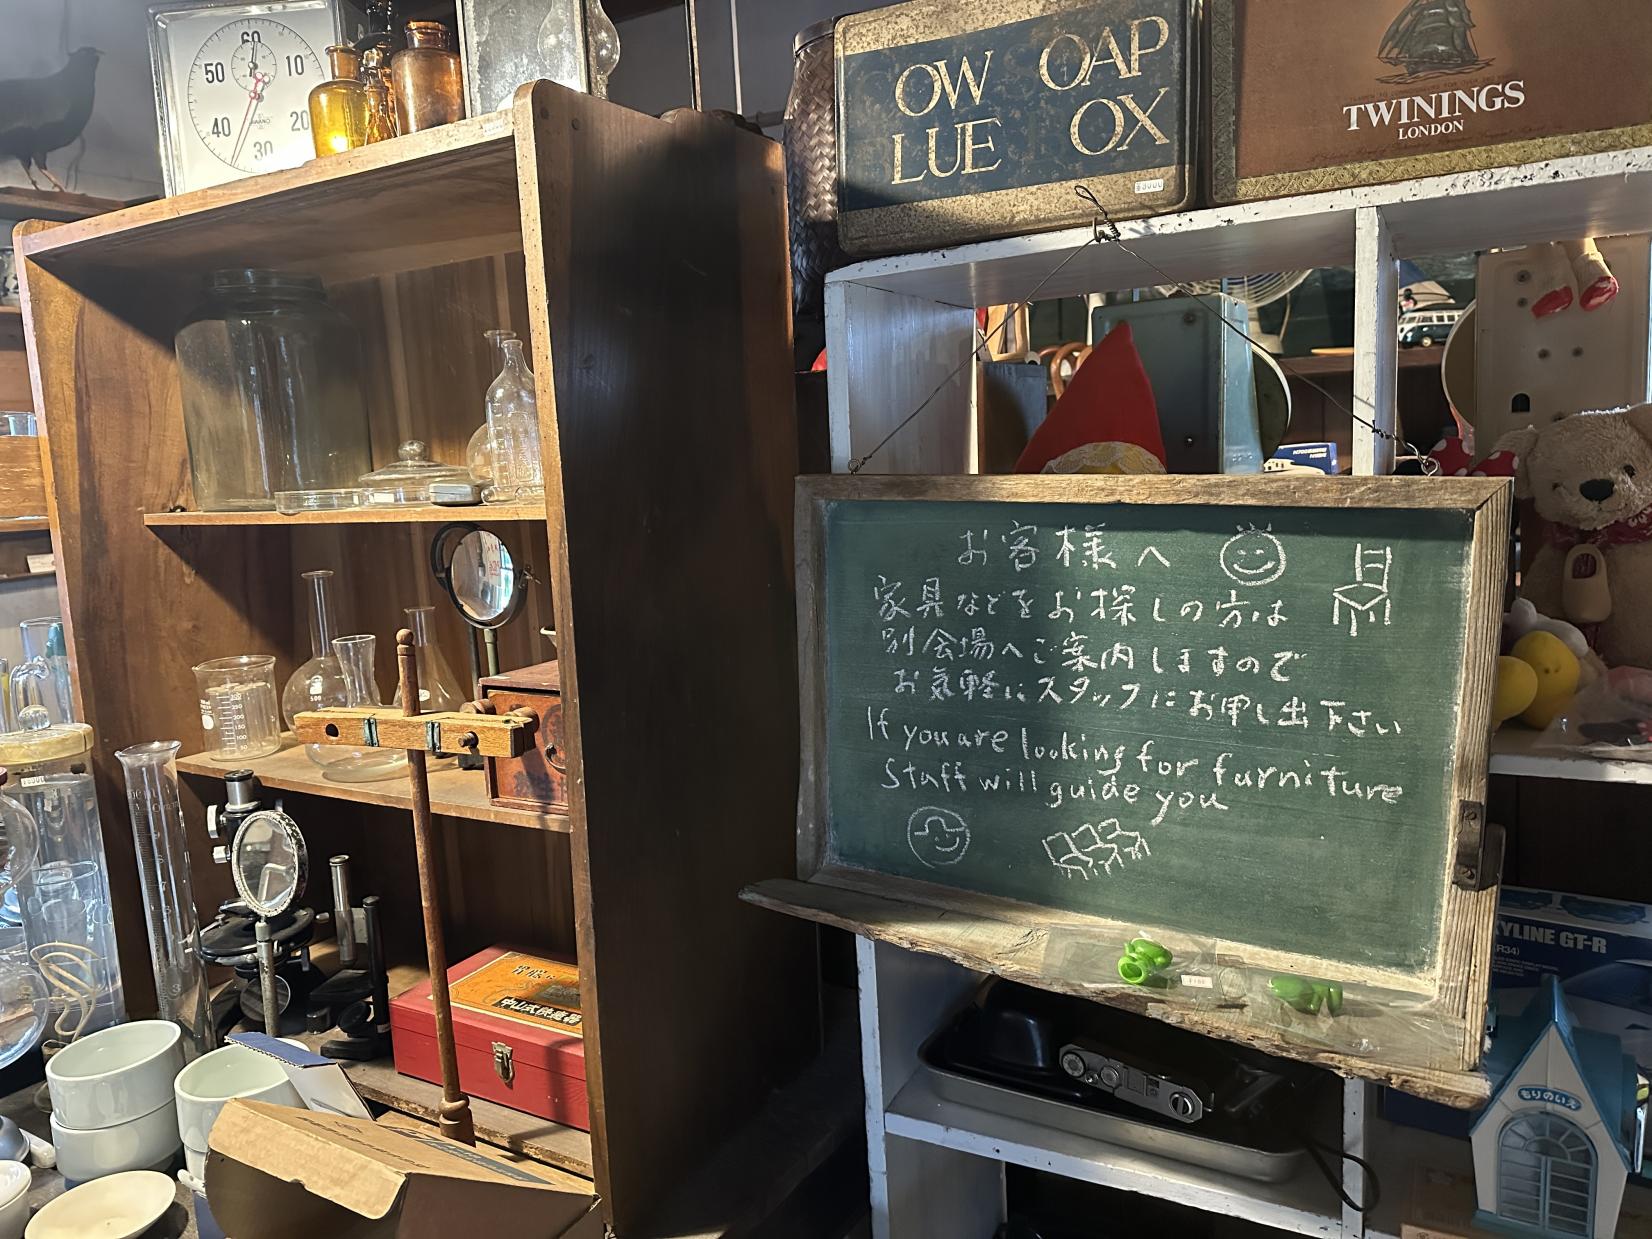 60
50 10
40 20
30
OW OAP
LUE OX
¥3000
TWININGS
LONDON
お客様へ
家具などをお探しの方は
別会場へご案内しますので
お気軽にスタッフにお申し出下さい
If you are looking for furniture
Staff will guide you
中山式快速器
KYLINE GT-R
R34)
もりのいえ